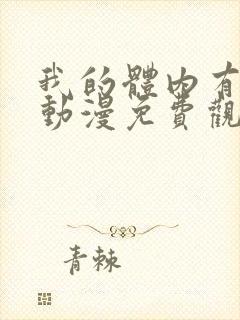 我的體內有
動漫免費觀
青棘